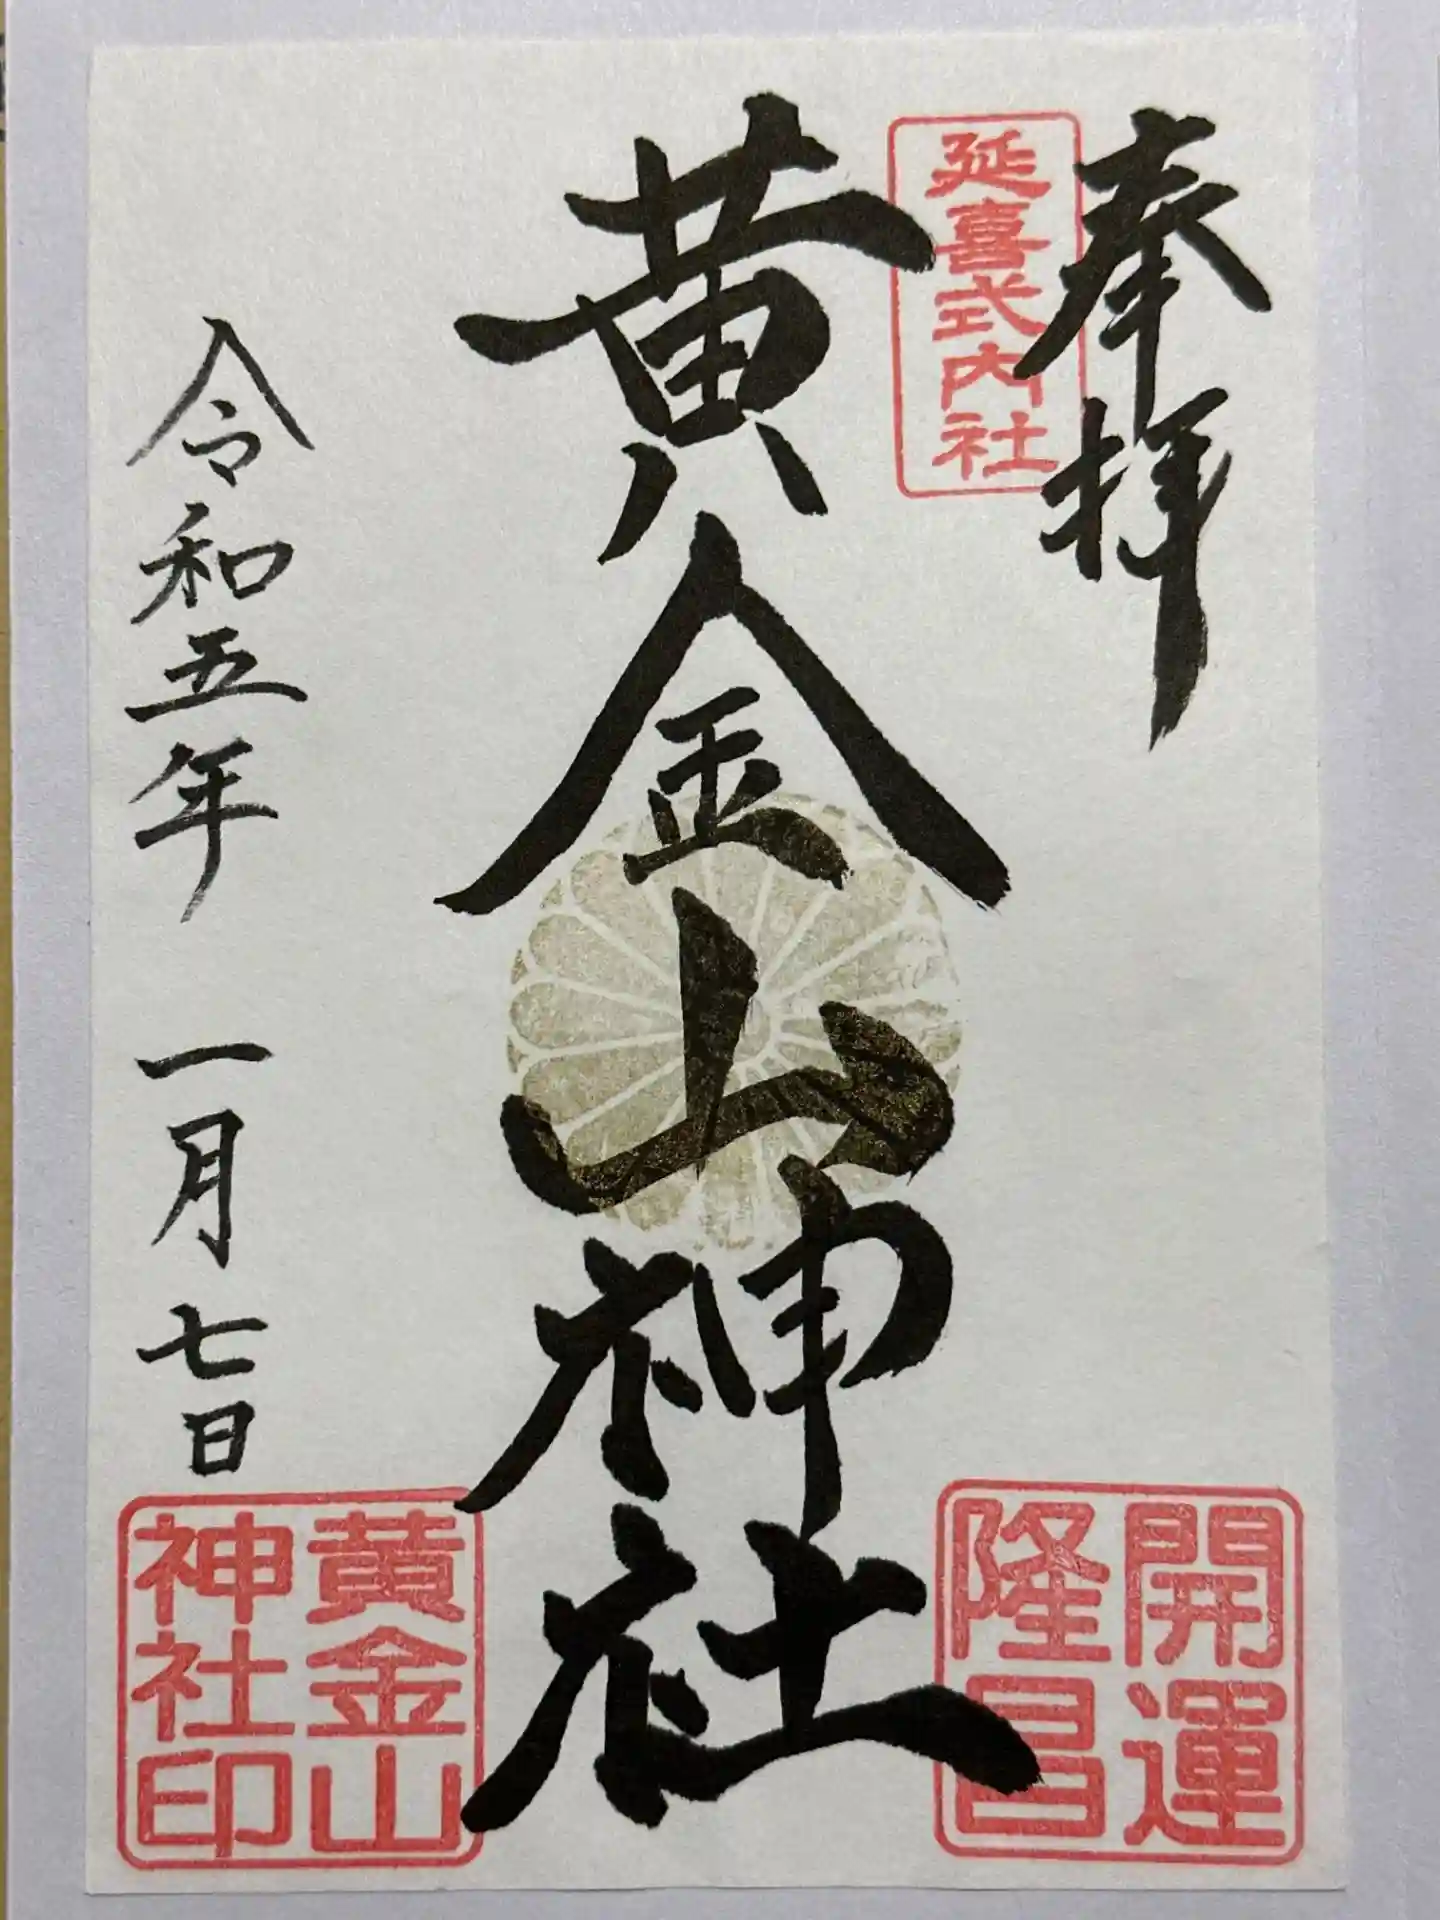 奉拝
延喜式内社
開運
隆昌
黄金山神社
令和五年 一月七日
黄金山
神社印